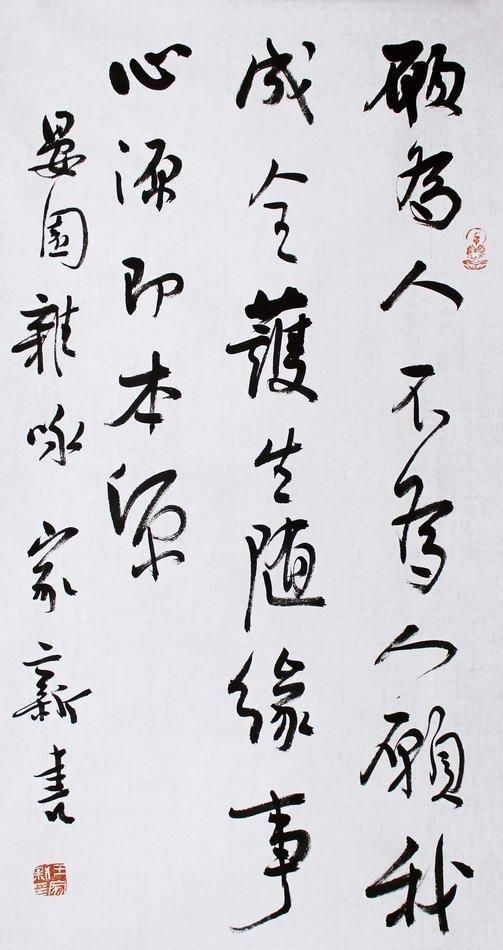 願為人不為人願我
成全護生随緣事
心源即本源
晏園雜咏家新書
王家新印